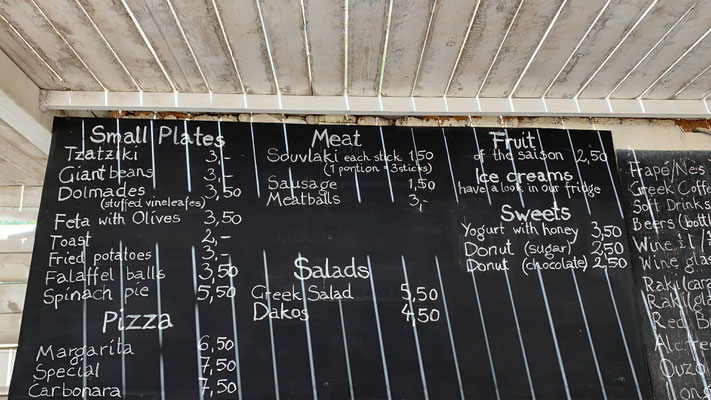 Small Plates
Tzatziki 3,-
Giant beans 3,-
Dolmades 3,50
(stuffed vineleafes)
Feta with Olives 3,50
Toast 2,-
Fried potatoes 3,-
Falaffel balls 3,50
Spinach pie 5,50
Pizza
Margarita 6,50
Special 7,50
Carbonara 7,50
Meat
Souvlaki each stick 1,50
(1 portion = 3 sticks)
Sausage 1,50
Meatballs 3,-
Salads
Greek Salad 5,50
Dakos 4,50
Fruit
of the saison 2,50
Ice creams
have a look in our fridge
Sweets
Yogurt with honey 3,50
Donut (sugar) 2,50
Donut (chocolate) 2,50
Frapé/Nes
Greek Coffe
Soft Drinks
Beers (bottl
Wine
Wine glas
Raki (cara
Raki (glas
Red B
Alc. free
Ouzo